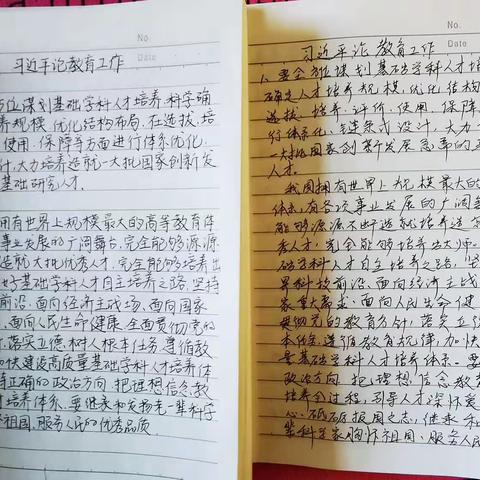 No.
Date
习近平论教育工作
位谋划基础学科人才培养,科学确
养规模,优化结构布局,在选拔、培
使用、保障等方面进行体系化、
计,大力培养造就一大批国家创新发
基础研究人才。
拥有世界上规模最大的高等教育体
事业发展的广阔舞台,完全能够源源
造就大批优秀人才,完全能够培养出
的基础学科人才自主培养之路,坚持
前沿、面向经济主战场、面向国家
、面向人民生命健康,全面贯彻党的
,落实立德树人根本任务,遵循教
加快建设高质量基础学科人才培养体
正确的政治方向,把理想信念教
培养体系,要继承和发扬老一辈科学
祖国、服务人民的优秀品质。
No.
Date
习近平论教育工作
1、要全方位谋划基础学科人才培
确定人才培养规模,优化结构
选拔、培养、评价、使用、保障
行体系化、链条式设计,大力
一大批国家创新发展急需的
人才。
我国拥有世界上规模最大的
体系,有各项事业发展的广阔
能够源源不断造就培养造
秀人才,完全能够培养出大师。
础学科人才自主培养之路,坚
界科技前沿、面向经济主战
家重大需求、面向人民生命健
贯彻党的教育方针,落实立
本任务,遵循教育规律,加快
量基础学科人才培养体系。要
政治方向,把理想信念教
培养全过程,引导人才深怀爱
心、砥砺报国之志,继承和
辈科学家胸怀祖国、服务人民